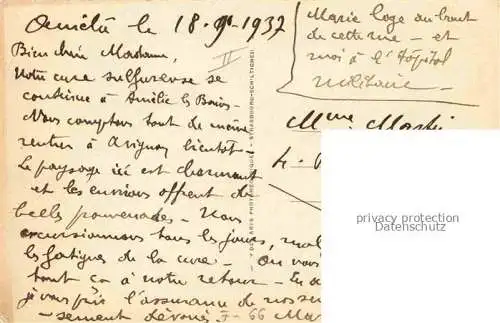 Amélie le 18-9-1937
Bien chère Madame,
Notre cure sulfureuse se
continue à Amélie les Bains.
Nous comptons tout de même
rentrer à Avignon bientôt.
Le paysage ici est charmant
et les environs offrent de
belles promenades - Nous
excursionnons tous les jours, mal
les fatigues de la cure - On vous
tout ça à notre retour - En
je vous prie l'assurance de nos
sement dévoués
Marie loge au bout
de cette rue - et
moi à l'Hôpital
militaire -
Mme
privacy protection
Datenschutz